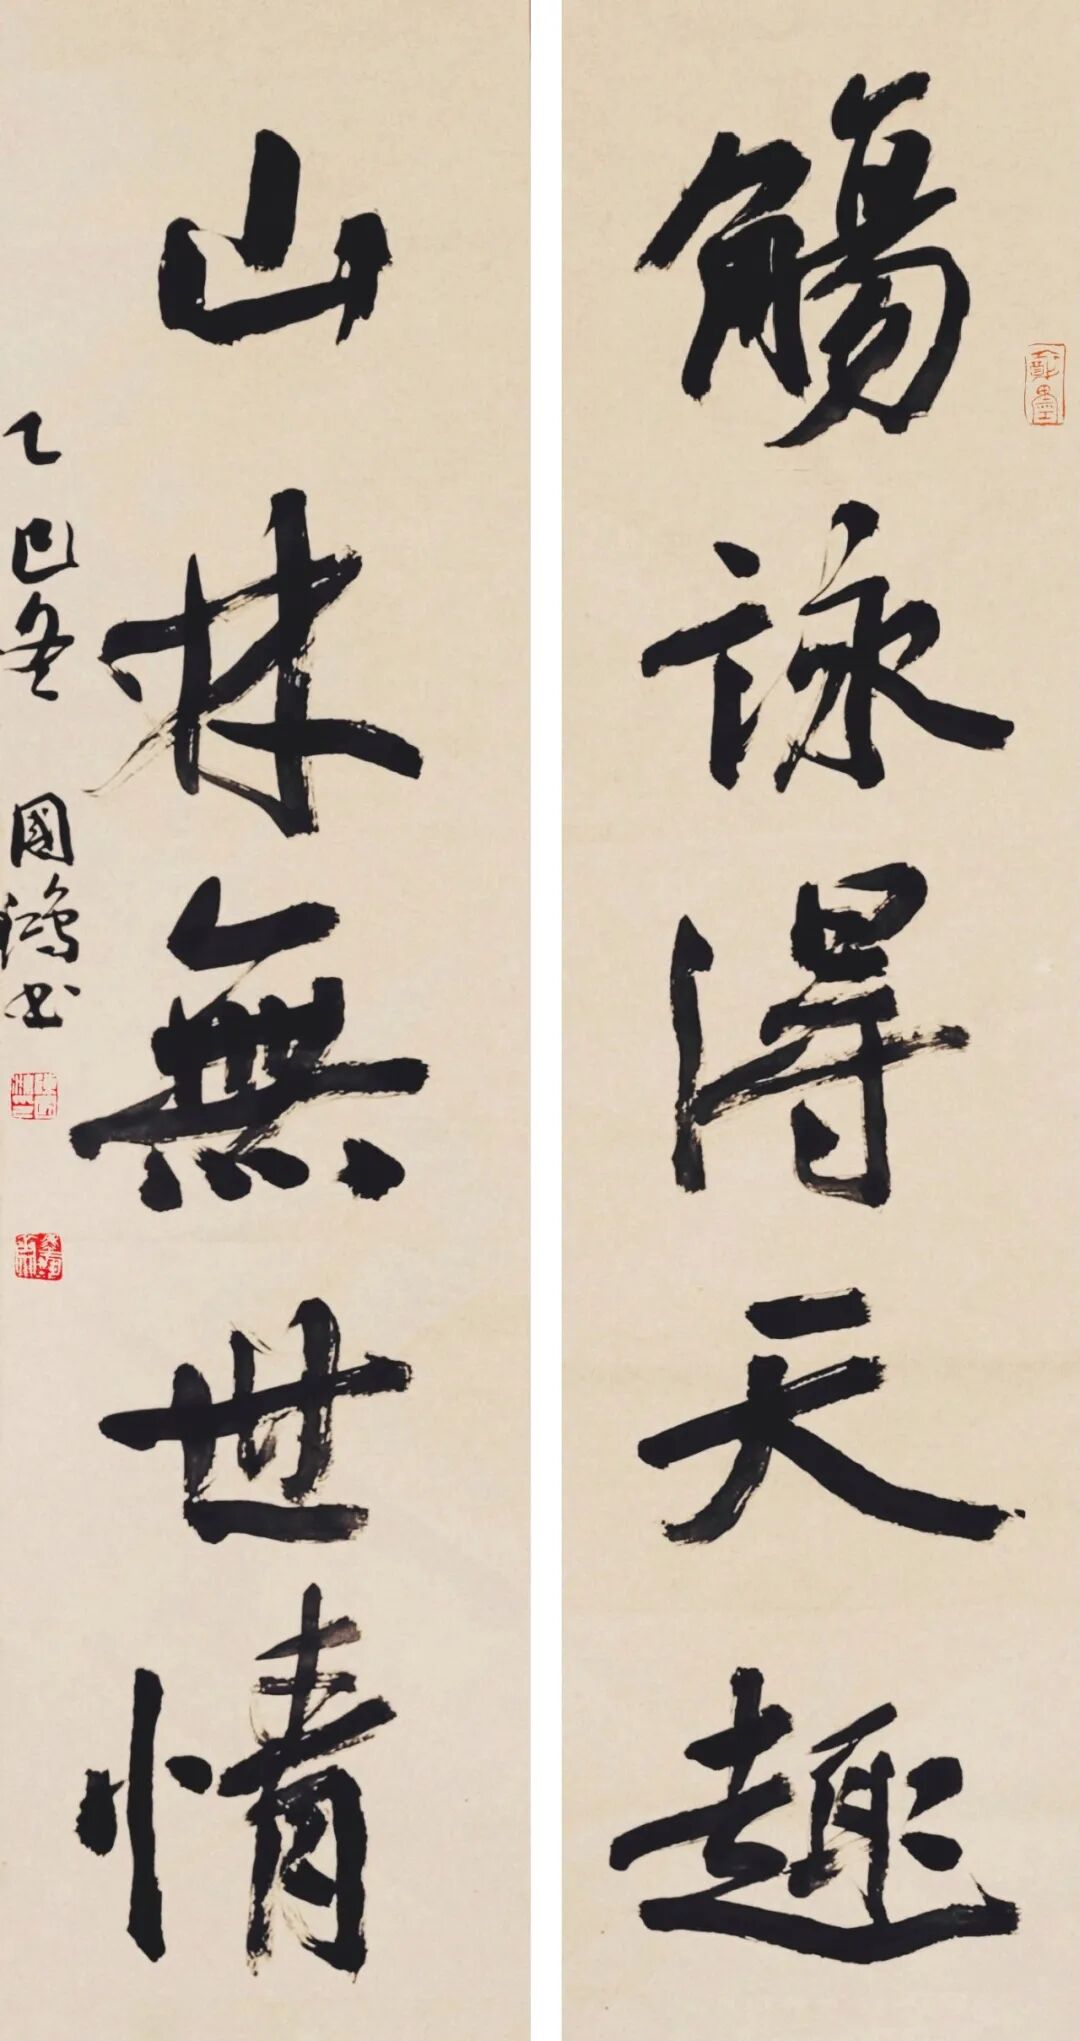 觴詠得天趣
山林無世情
乙巳冬 國鴻书